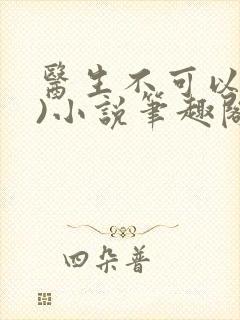 醫生不可以
)小說筆趣閣
四朵普